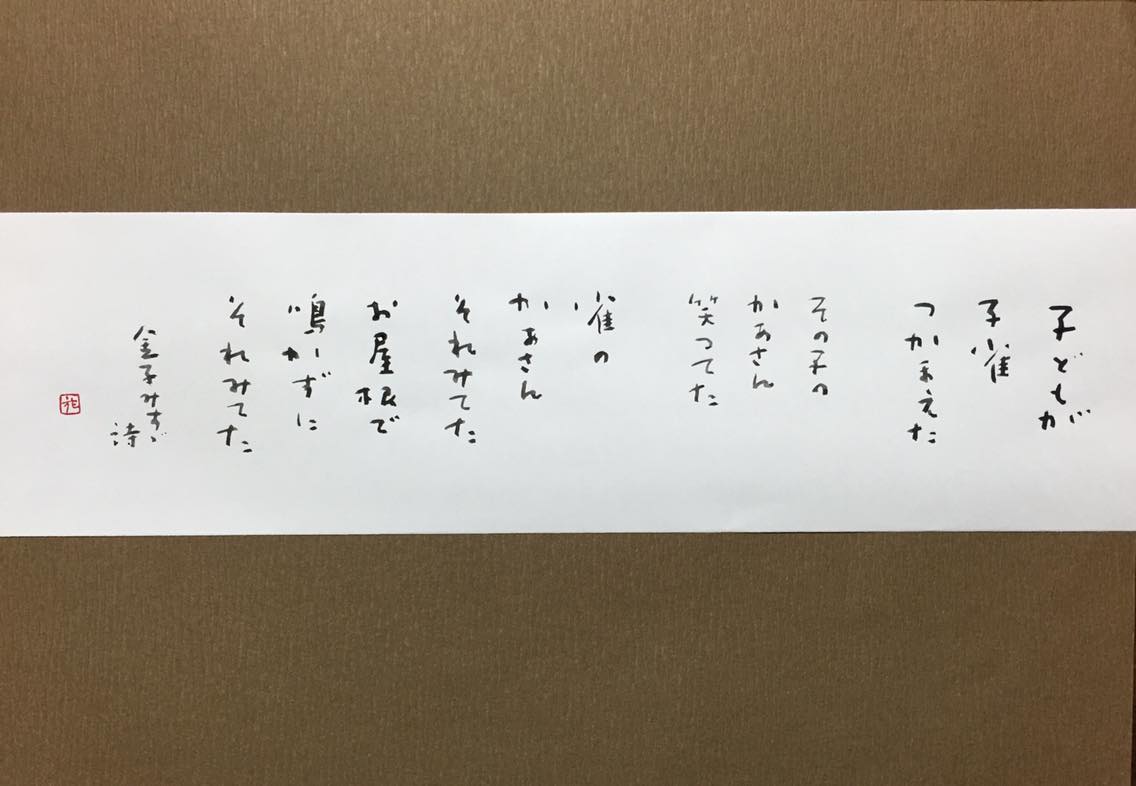 子どもが
子雀
つかまえた
その子の
かあさん
笑つてた
雀の
かあさん
それみてた
お屋根で
鳴かずに
それみてた
金子みすゞ
詩